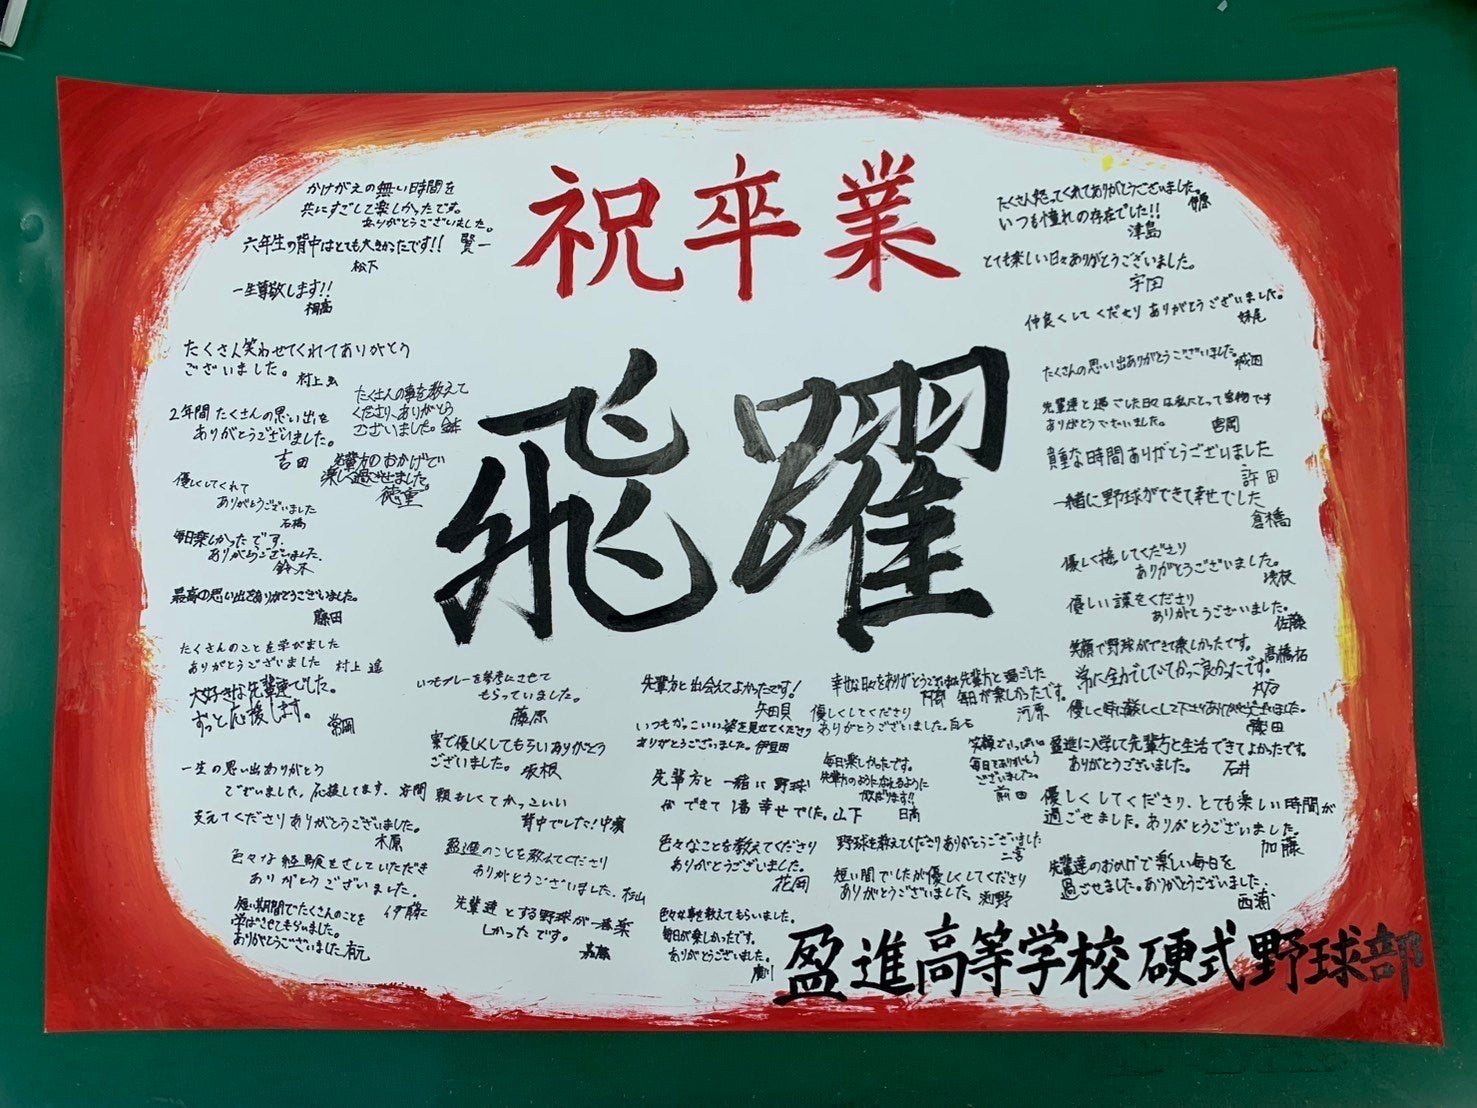 祝卒業
飛躍
かけがえの無い日時間を
共にすごして楽しかったです。
ありがとうございました。
賢一
六年生の背中はとても大きかったです!!
松下
一生尊敬します!!
たくさん笑わせてくれてありがとう
ございました。
村上
たくさんの事を教えて
くださり、ありがとう
ございました。
2年間たくさんの思い出を
ありがとうございました。
吉田
先輩方のおかげで
楽しく過ごせました。
徳重
優しくしてくれて
ありがとうございました
石橋
毎日楽しかったです、
ありがとうございました、
鈴木
最高の思い出をありがとうございました。
藤田
たくさんのことを学びました
ありがとうございました 村上 遥
大好きな先輩達でした。
ずっと応援します。
一生の思い出ありがとう
ございました。応援してます。
支えてくださりありがとうございました。
木原
色々な経験をさせていただき
ありがとうございました。
伊藤
短い期間でたくさんのことを
学ばさせてもらいました。
ありがとうございました 有元
いつもプレーを参考にさせて
もらっていました。
藤原
寮で優しくしてもらいありがとう
ございました。 坂根
頼もしくてかっこいい
背中でした! 中濱
盈進のことを教えてくださり
ありがとうございました、 杉山
先輩達とする野球が一番楽
しかったです。
先輩方と出会えてよかったです!
矢田貝
いつもかっこいい姿を見せてくださり
ありがとうございました。 伊豆田
先輩方と一緒に野球
ができて1番幸せでした。山下
色々なことを教えてくださり
ありがとうございました。
花岡
色々な事を教えてもらいました。
毎日が楽しかったです。
ありがとうございました。
幸せな日々をありがとうございました
優しくしてくださり
ありがとうございました。 白石
毎日楽しかったです。
先輩方のようになれるように
がんばります!!
日高
野球を教えてくださりありがとうございました
二宮
短い間でしたが優しくしてくださり
ありがとうございました、 河野
先輩方と過ごした
毎日が楽しかったです。
河原
笑顔でいっぱいの
毎日をありがとう
ございました。
前田
たくさん怒ってくれてありがとうございました。
いつも憧れの存在でした!!
津島
とても楽しい日々ありがとうございました。
宇田
仲良くしてくださりありがとうございました。
妹尾
たくさんの思い出ありがとうございました。 城田
先輩達と過ごした日々は私にとって宝物です
ありがとうございました。
吉岡
貴重な時間ありがとうございました
許田
一緒に野球ができて幸せでした
倉橋
優しく接してくださり
ありがとうございました。
優しい課をくださり
ありがとうございました。
佐藤
笑顔で野球ができて楽しかったです。
高橋拓
優しく時に厳しくして下さりありがとうございました。
藤田
盈進に入学して先輩方と生活できてよかったです。
ありがとうございました。
石井
優しくしてくださり、とても楽しい時間が
過ごせました。ありがとうございました。
加藤
先輩達のおかげで楽しい毎日を
過ごせました。ありがとうございました、
西浦
盈進高等学校硬式野球部